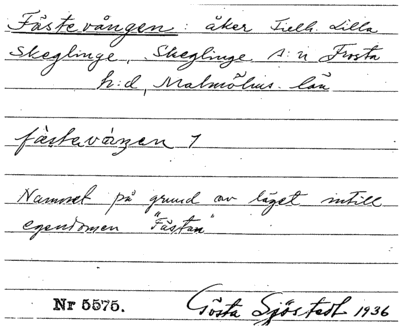 Fästevången : åker Tillh. Lilla
Skeglinge, Skeglinge s:n Frosta
h:d, Malmöhus län
fästevåŋen 1
Namnet på grund av läget intill
egendomen "Fästan"
Nr 5575. Gösta Sjöstedt 1936